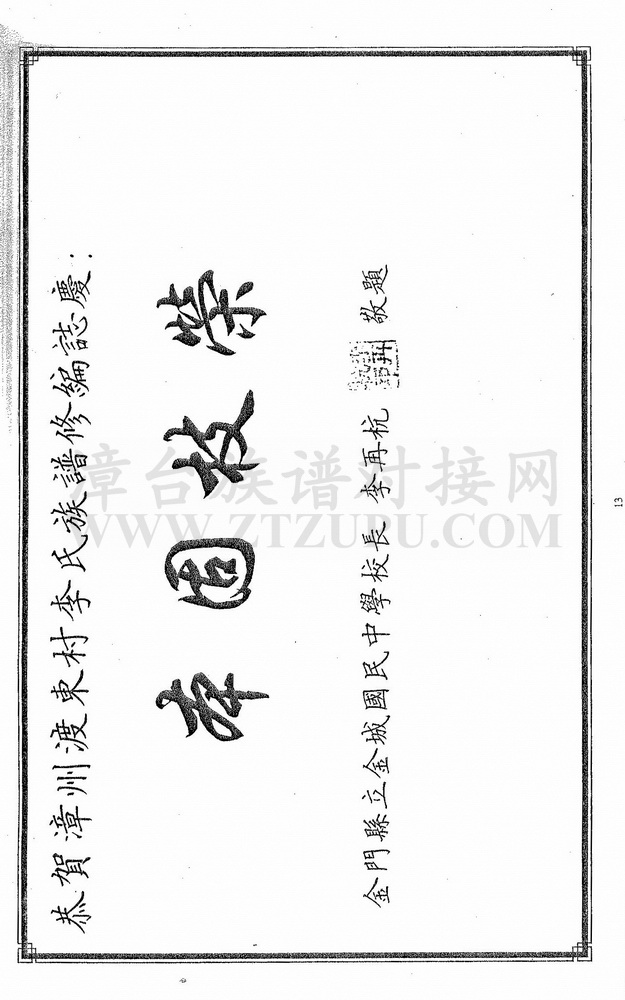 恭賀漳州渡東村李氏族譜修編誌慶：
本固枝榮
金門縣立金城國民中學校長 李再杭 敬題
漳台族谱对接网
WWW.ZTZUPU.COM
13